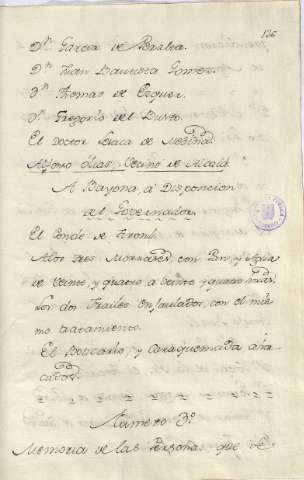 126
Dn. Garcia de Peralta.
Dn. Juan Bautista Gomez.
Dn. Thomas de Ezquer.
Dn. Gregorio del Busto.
El Doctor Laca de Medina.
Alonso Dias, Vecino de Alcalá.
A Bayona, a Disposicion
del Governador.
El Conde de
A los tres con Pan, y Agua
de veinte, y quatro a veinte y quatro
Los dos Frailes enjaulados, con el mis-
mo tratamiento.
El Boticario, y Caraquemada
Numero 3º.
Memoria de las Personas que se